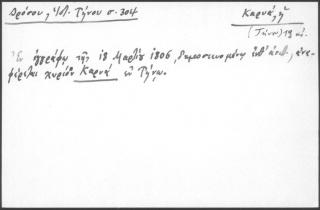 Δρόσου, Ἱστ. Τήνου σ. 304
Καρυά, ἡ
(Τήνος) 19 αἰ.
Ἐν ἐγγράφῳ τῆς 18 Μαρτίου 1806, δημοσιευομένῳ ὑπ' αὐτοῦ, ἀνα-
φέρεται χωρίον Καρυά ἐν Τήνῳ.